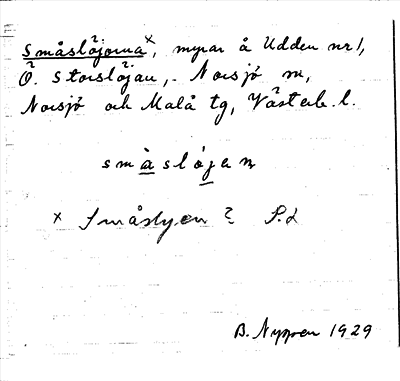 Småslöjorna ×, myrar å Udden nr 1,
Ö. Storslöjan, Norsjö sn,
Norsjö och Malå tg, Västerb. l.
småsloʹjan
× Småslyen? P.L
B. Nyman 1929